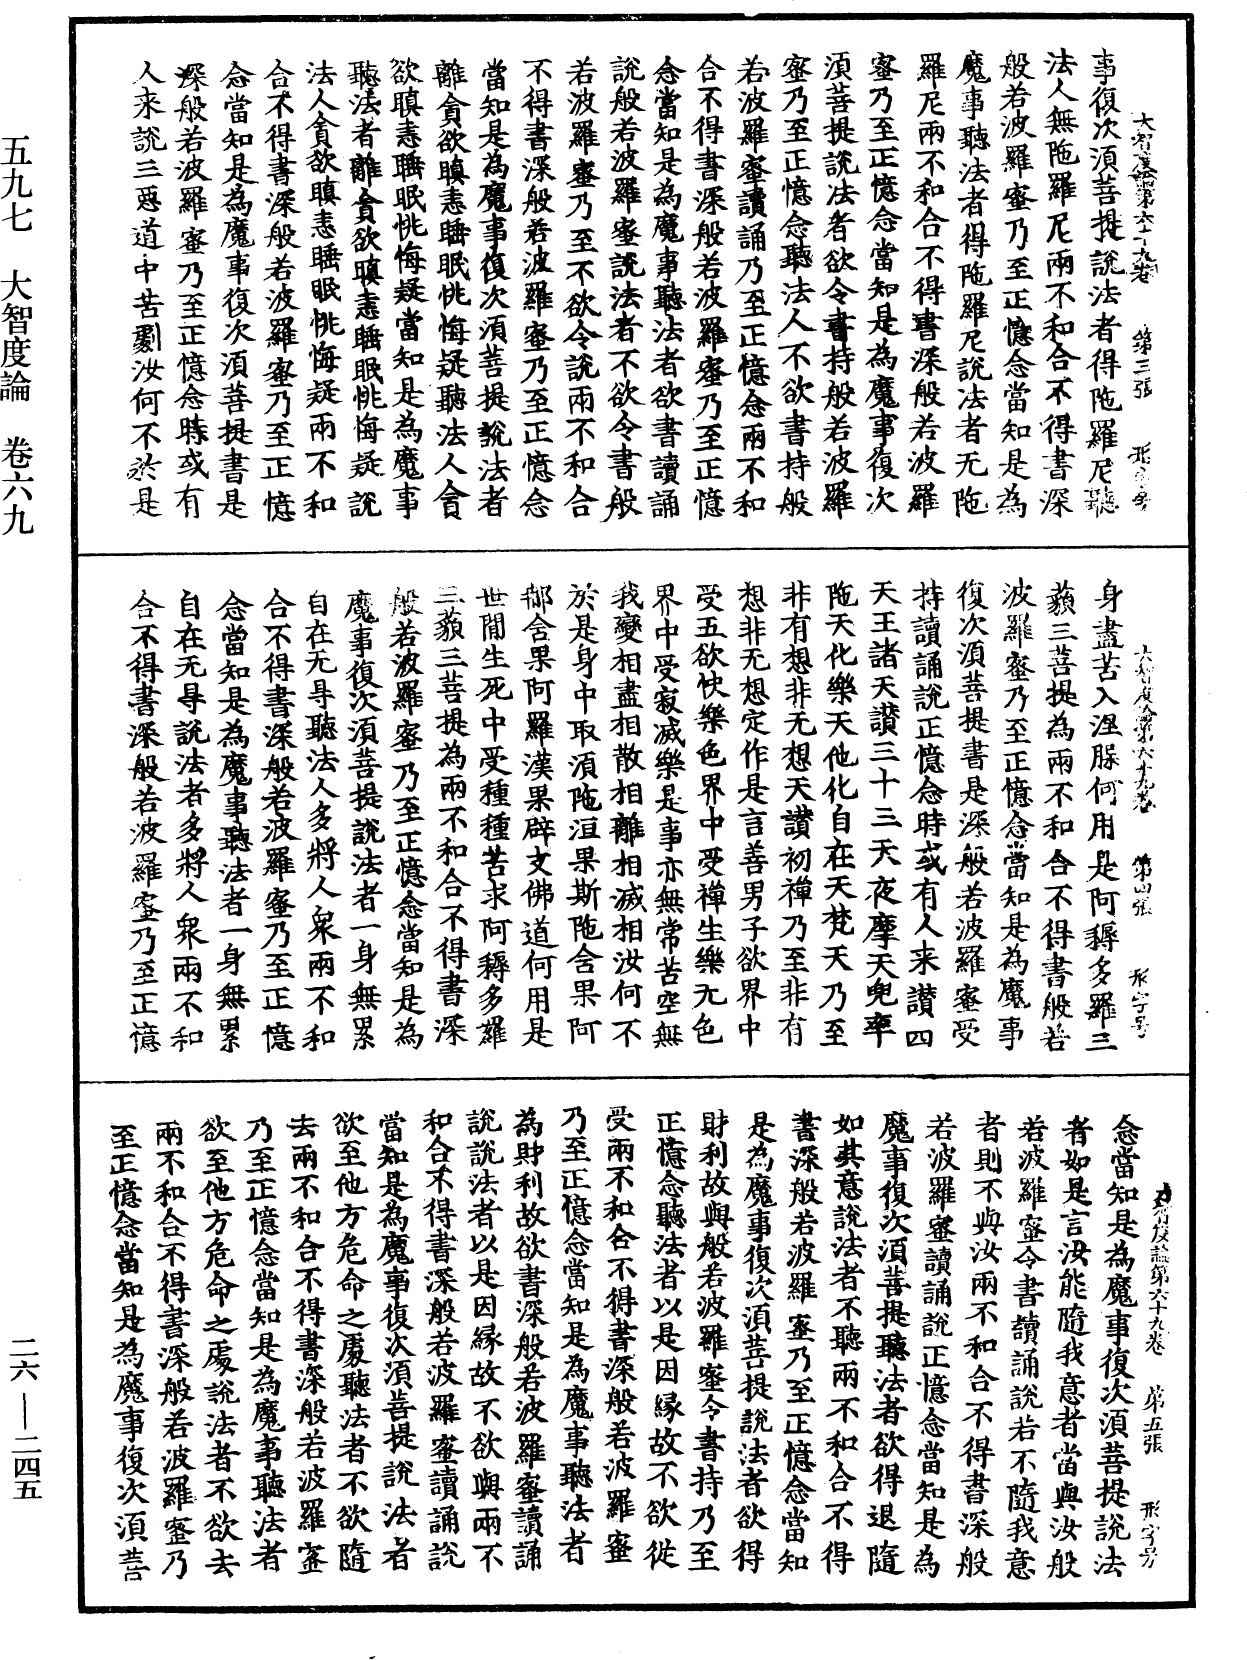 大智度論第六十九卷 第三張 形字号
事復次須菩提說法者得陁羅尼聽
法人無陁羅尼兩不和合不得書深
般若波羅蜜乃至正憶念當知是為
魔事聽法者得陁羅尼說法者无陁
羅尼兩不和合不得書深般若波羅
蜜乃至正憶念當知是為魔事復次
須菩提說法者欲令書持般若波羅
蜜乃至正憶念聽法人不欲書持般
若波羅蜜讀誦乃至正憶念兩不和
合不得書深般若波羅蜜乃至正憶
念當知是為魔事聽法者欲書讀誦
說般若波羅蜜說法者不欲令書般
若波羅蜜乃至不欲令說兩不和合
不得書深般若波羅蜜乃至正憶念
當知是為魔事復次須菩提說法者
離貪欲瞋恚睡眠悔疑聽法人貪
欲瞋恚睡眠悔疑當知是為魔事
聽法者離貪欲瞋恚睡眠悔疑說
法人貪欲瞋恚睡眠悔疑兩不和
合不得書深般若波羅蜜乃至正憶
念當知是為魔事復次須菩提書是
深般若波羅蜜乃至正憶念時或有
人来說三惡道中苦劇汝何不於是
大智度論第六十九卷 第四張 形字号
身盡苦入涅脲何用是阿耨多羅三
藐三菩提為兩不和合不得書般若
波羅蜜乃至正憶念當知是為魔事
復次須菩提書是深般若波羅蜜受
持讀誦說正憶念時或有人来讃四
天王諸天讃三十三天夜摩天兜率
陁天化樂天他化自在天梵天乃至
非有想非无想天讃初禪乃至非有
想非无想定作是言善男子欲界中
受五欲快樂色界中受禪生樂无色
界中受寂滅樂是事亦無常苦空無
我變相盡相散相離相滅相汝何不
於是身中取須陁洹果斯陁含果阿
那含果阿羅漢果辟支佛道何用是
世間生死中受種種苦求阿耨多羅
三藐三菩提為兩不和合不得書深
般若波羅蜜乃至正憶念當知是為
魔事復次須菩提說法者一身無累
自在无㝵聽法人多將人衆兩不和
合不得書深般若波羅蜜乃至正憶
念當知是為魔事聽法者一身無累
自在无㝵說法者多將人衆兩不和
合不得書深般若波羅蜜乃至正憶
大智度論第六十九卷 第五張 形字号
念當知是為魔事復次須菩提說法
者如是言汝能隨我意者當與汝般
若波羅蜜令書讀誦說若不隨我意
者則不與汝兩不和合不得書深般
若波羅蜜讀誦說正憶念當知是為
魔事復次須菩提聽法者欲得退隨
如其意說法者不聽兩不和合不得
書深般若波羅蜜乃至正憶念當知
是為魔事復次須菩提說法者欲得
財利故與般若波羅蜜令書持乃至
正憶念聽法者以是因緣故不欲從
受兩不和合不得書深般若波羅蜜
乃至正憶念當知是為魔事聽法者
為財利故欲書深般若波羅蜜讀誦
說說法者以是因緣故不欲與兩不
和合不得書深般若波羅蜜讀誦說
當知是為魔事復次須菩提說法者
欲至他方危命之處聽法者不欲隨
去兩不和合不得書深般若波羅蜜
乃至正憶念當知是為魔事聽法者
欲至他方危命之處說法者不欲去
兩不和合不得書深般若波羅蜜乃
至正憶念當知是為魔事復次須菩
五九七 大智度論 卷六九
二六—二四五